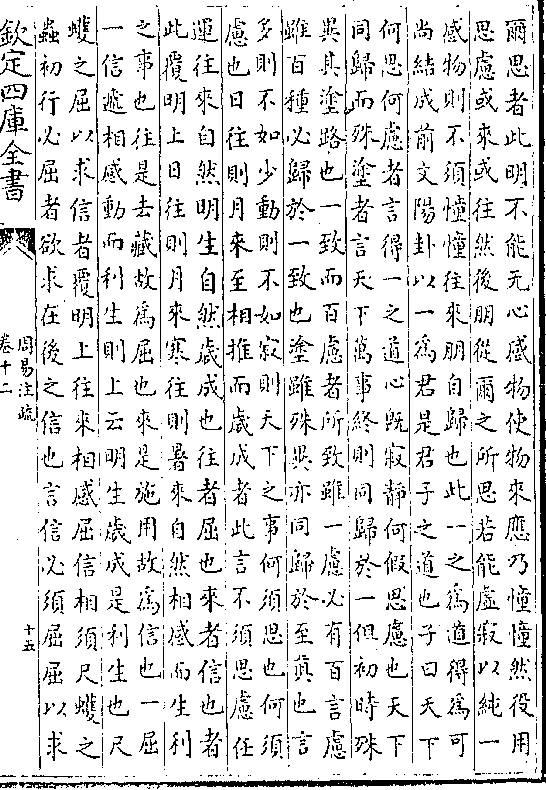 爾思者此明不能无心感物使物來應乃憧憧然役用
思慮或來或往然後朋從爾之所思若能虛寂以純一
感物則不須憧憧往來朋自歸也此一之為道得為可
尚結成前文陽卦以一為君是君子之道也子曰天下
何思何慮者言得一之道心既寂靜何假思慮也天下
同歸而殊塗者言天下萬事終則同歸於一但初時殊
異其塗路也一致而百慮者所致雖一慮必有百言慮
雖百種必歸於一致也塗雖殊異亦同歸於至真也言
多則不如少動則不如寂則天下之事何須思也何須
慮也日往則月來至相推而歲成者此言不須思慮任
運往來自然明生自然歲成也往者屈也來者信也者
此覆明上日往則月來寒往則暑來自然相感而生利
之事也往是去藏故為屈也來是施用故為信也一屈
一信遞相感動而利生則上云明生歲成是利生也尺
蠖之屈以求信者覆明上往來相感屈信相須尺蠖之
蟲初行必屈者欲求在後之信也言信必須屈屈以求
欽定四庫全書
周易注疏
卷十二
十五